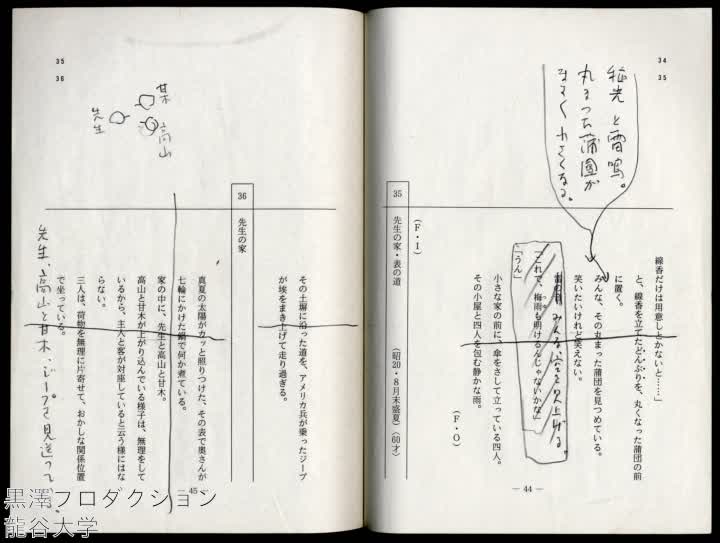 34
35
稲光と雷鳴。
丸まった蒲團が
まるく小さくなる。
線香だけは用意しとかないと……」
と、線香を立てたどんぶりを、丸くなった蒲団の前
に置く。
みんな、その丸まった蒲団を見つめている。
笑いたいけれど笑えない。
みんな、空を見上げる。
「これで、梅雨も明けるんじゃないかな」
「うん」
小さな家の前に、傘をさして立っている四人。
その小屋と四人を包む静かな雨。
(F・O)
(F・I)
35 先生の家・表の道 (昭20・8月末盛夏)(60才)
― 44 ―
35
36
その土塀に沿った道を、アメリカ兵が乗ったジープ
が埃をまき上げて走り過ぎる。
36 先生の家
真夏の太陽がカッと照りつけた、その表で奥さんが
七輪にかけた鍋で何か煮ている。
家の中に、先生と高山と甘木。
高山と甘木が上がり込んでいる様子は、無理をして
いるから、主人と客が対座していると云う様にはな
らない。
三人は、荷物を無理に片寄せて、おかしな関係位置
で坐っている。
甘木
高山
先生
先生、高山と甘木、ジープを見送っている。
― 45 ―
黒澤プロダクション
龍谷大学